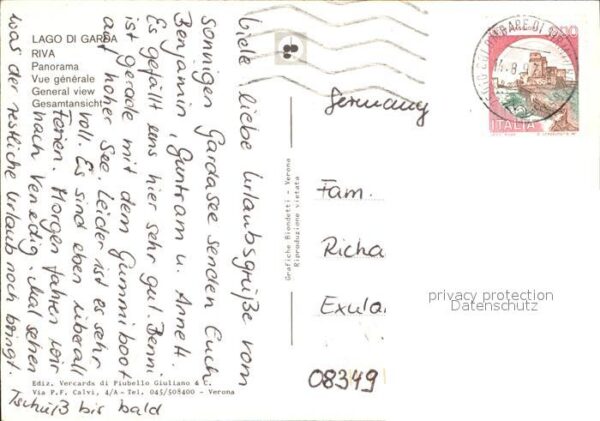 LAGO DI GARDA
RIVA
Panorama
Vue générale
General view
Gesamtansicht
Viele, liebe Urlaubsgrüße vom
sonnigen Gardasee senden Euch
Benjamin, Guntram u. Annett.
Es gefällt uns hier sehr gut. Benni
ist gerade mit dem Gummiboot
auf hoher See. Leider ist es sehr
voll. Es sind eben überall
Ferien. Morgen fahren wir
nach Venedig. Mal sehen
was der restliche Urlaub noch bringt.
Tschüß bis bald
Ediz. Vercards di Fiubello Giuliano & C.
Via P.F. Calvi, 4/A - Tel. 045/508400 - Verona
Grafiche Biondetti - Verona
Riproduzione vietata
ITALIA
Germany
Fam.
Richa
Exula
08349
privacy protection
Datenschutz